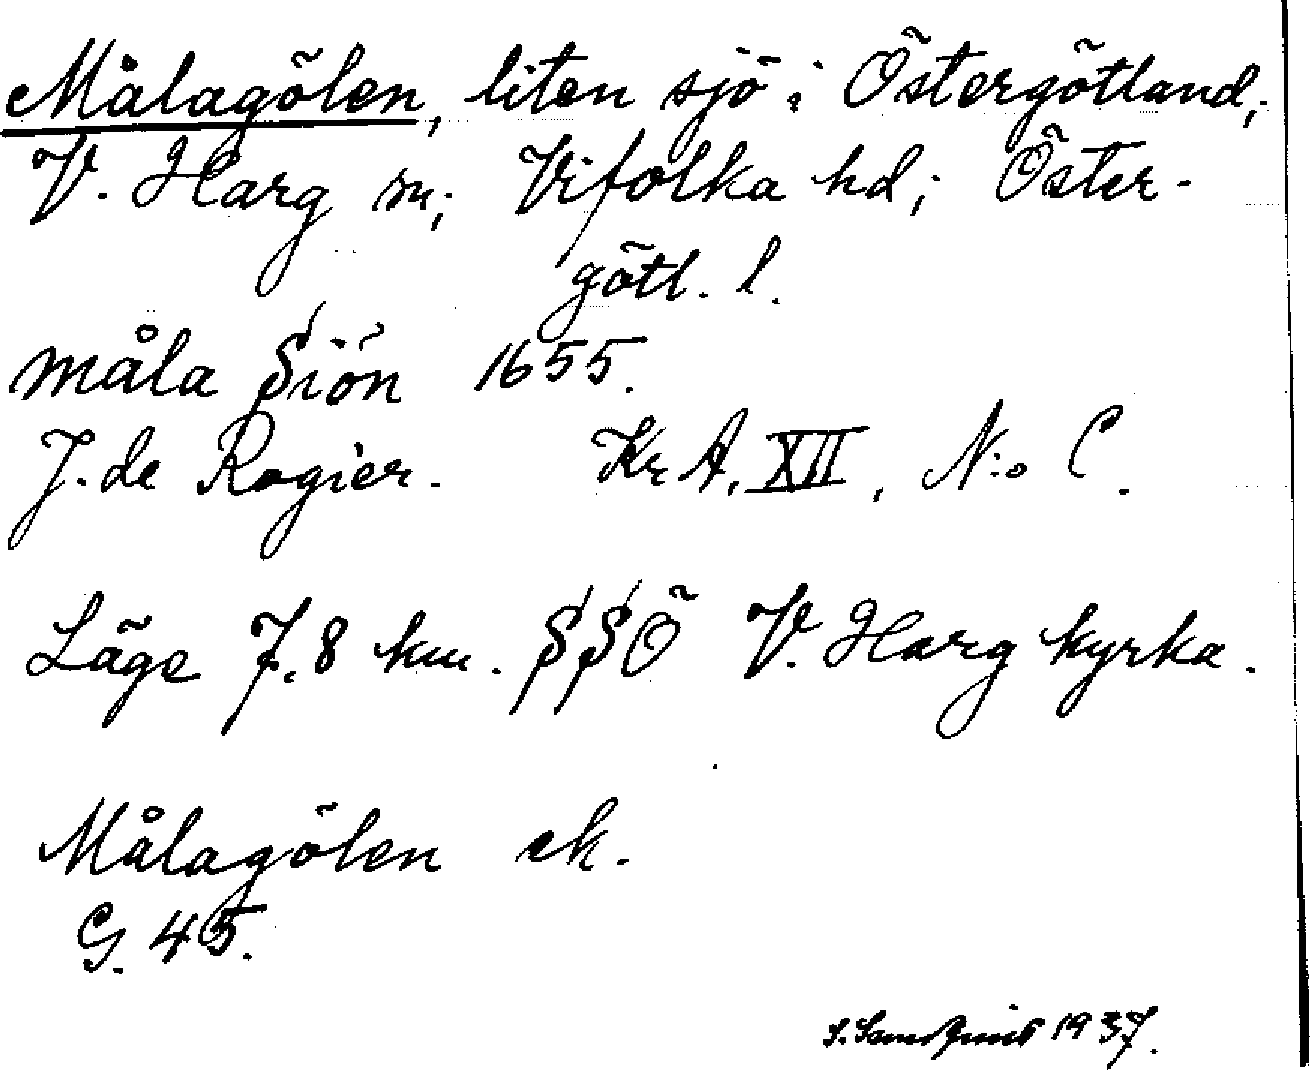 Målagölen, liten sjö i Östergötland,
V. Harg sn; Vifolka hd; Öster-
götl. l.
måla Siön 1655.
J. de Rogier. Kr A, XII, N:o C.
Läge 7,8 km. SSÖ V. Harg kyrka.
Målagölen ek.
G. 45.
S. Sandquist 1937.